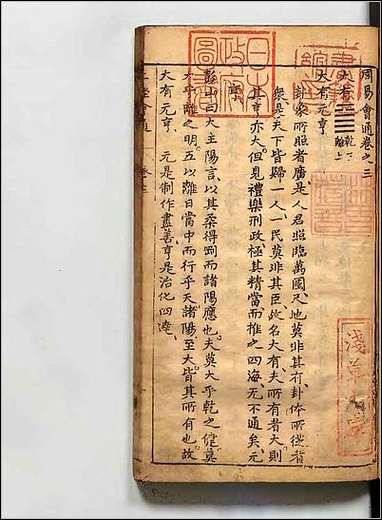 周易會通卷之三
大有 乾下離上
大有元亨
卦象所照者廣是人君照臨萬國尺地莫非其有卦体所從者
衆是天下皆歸一人一民莫非其臣故名大有夫所有者大則
其亨亦大但見禮樂刑政極其精當而推之四海无不通矣元
亨
彭山曰大主陽言以其柔得剛而諸陽應也夫莫大乎乾之健莫
大乎離之明五以離日當中而行乎天諸陽至大皆其所有也故
大有元亨 元是制作盡善亨是治化四達
日本
政府
圖書
淺草文庫